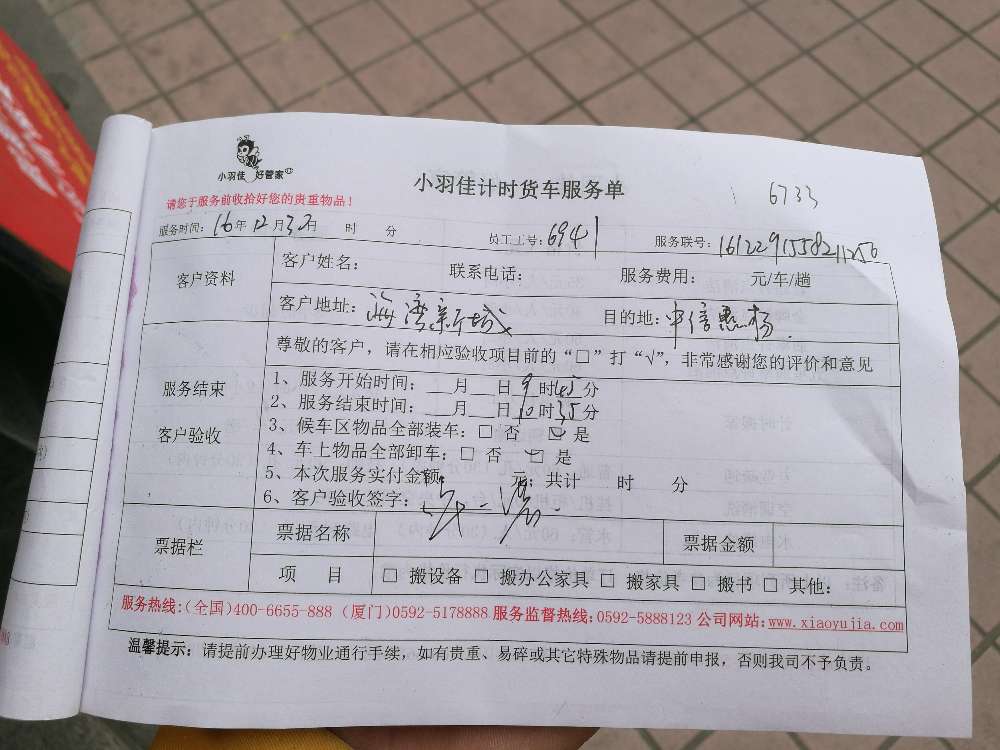 小羽佳 好管家
小羽佳计时货车服务单
6733
请您于服务前收拾好您的贵重物品！
服务时间：16年12月30日 时 分 员工工号：6941 服务联号：
客户资料
客户姓名： 联系电话： 服务费用： 元/车/趟
客户地址：海湾新城 目的地：中信惠扬
服务结束
客户验收
尊敬的客户，请在相应验收项目前的“□”打“√”，非常感谢您的评价和意见
1、服务开始时间：___月___日9时45分
2、服务结束时间：___月___日10时35分
3、候车区物品全部装车：□ 否 □ 是
4、车上物品全部卸车：□ 否 □ 是
5、本次服务实付金额： 元；共计 时 分
6、客户验收签字：
票据栏
票据名称 票据金额
项 目 □ 搬设备 □ 搬办公家具 □ 搬家具 □ 搬书 □ 其他：
服务热线：(全国)400-6655-888 (厦门)0592-5178888 服务监督热线：0592-5888123 公司网站：www.xiaoyujia.com
温馨提示：请提前办理好物业通行手续，如有贵重、易碎或其它特殊物品请提前申报，否则我司不予负责。